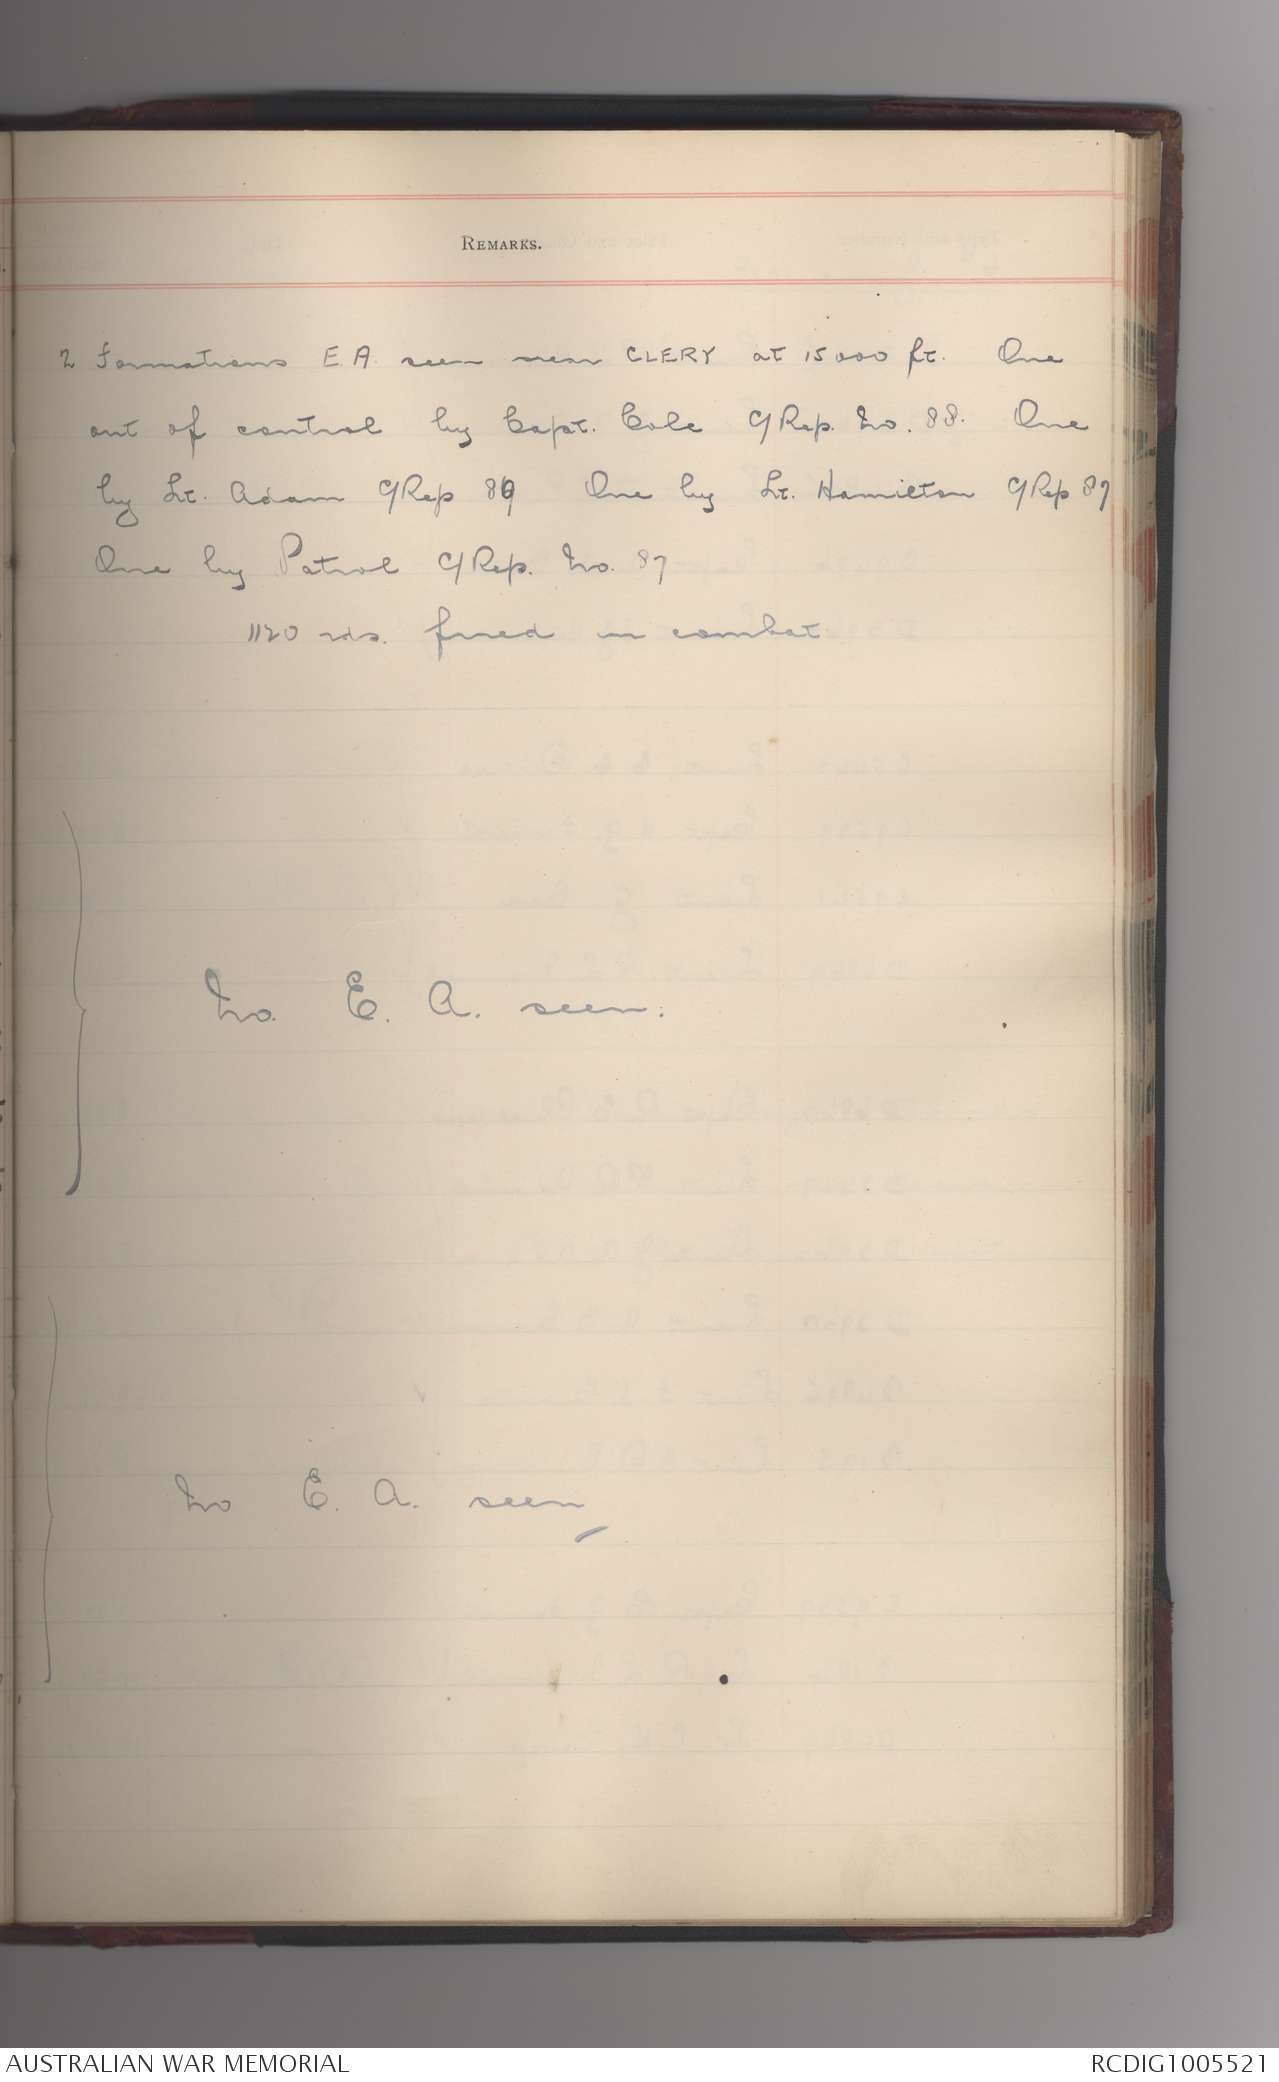 REMARKS.
2 Formations E.A. seen near CLERY at 15000 ft. One
out of control by Capt. Cole C/Rep. No. 88. One
by Lt. Adam C/Rep 89 One by Lt. Hamilton C/Rep 87
One by Patrol C/Rep. No. 87
1120 rds. fired in combat.
No. E. A. seen.
No E. A. seen
AUSTRALIAN WAR MEMORIAL
RCDIG1005521